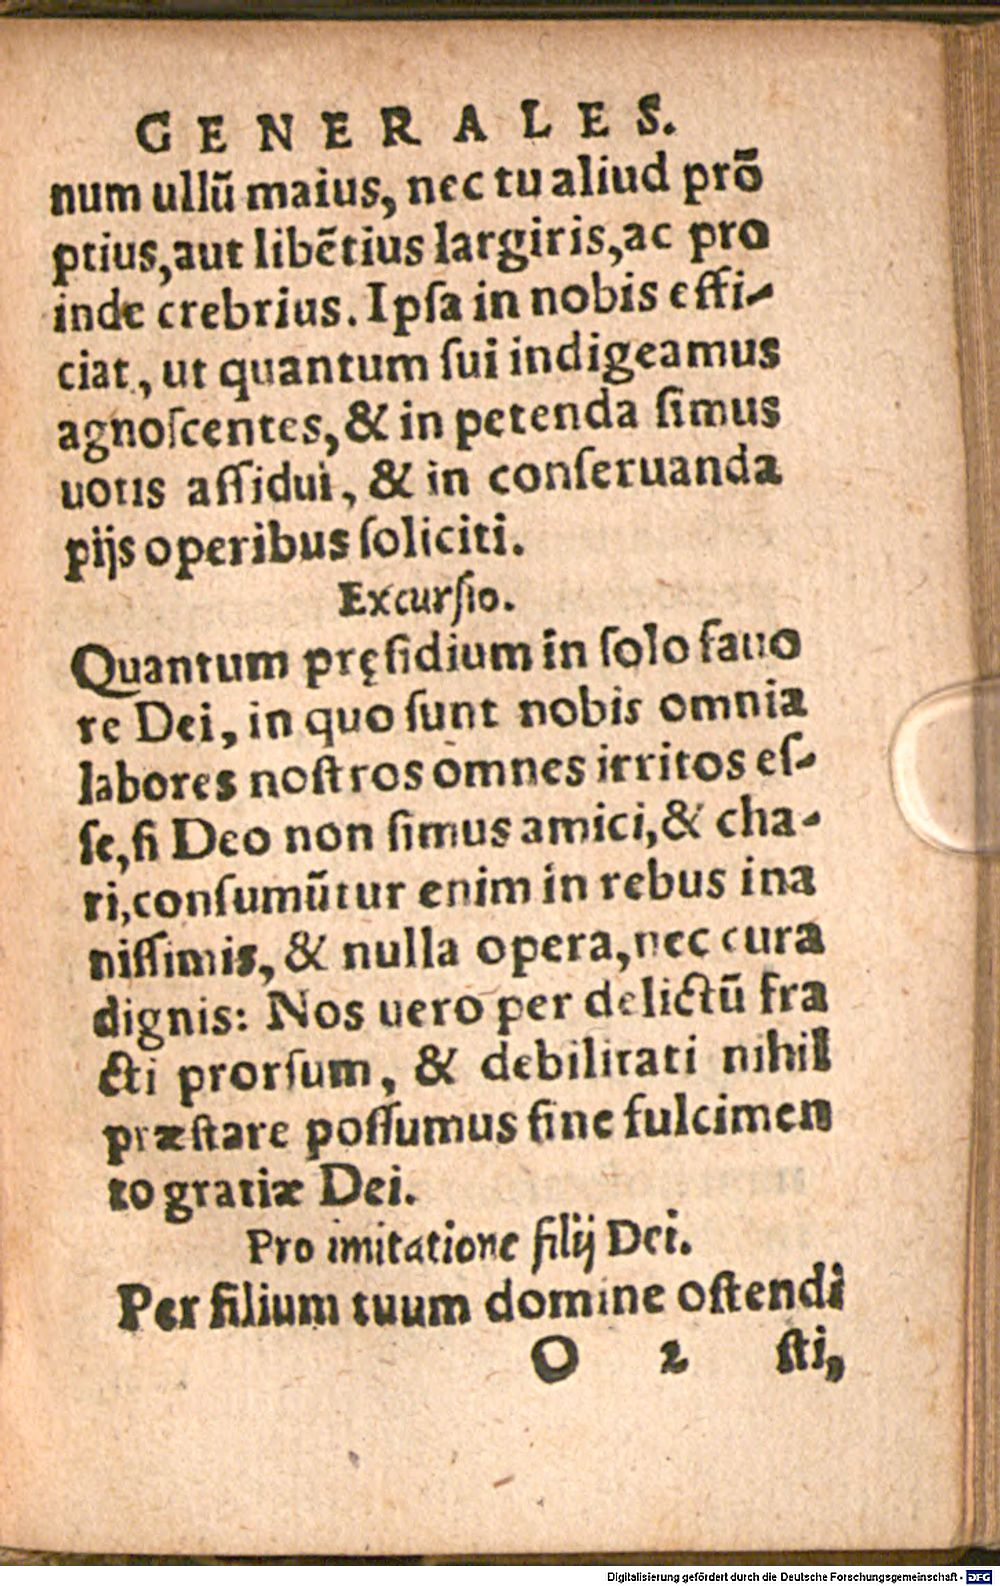 GENERALES.
num ullũ maius, nec tu aliud prõ
ptius, aut libẽtius largiris, ac pro
inde crebrius. Ipſa in nobis effi-
ciat, ut quantum ſui indigeamus
agnoſcentes, & in petenda ſimus
uotis aſſidui, & in conſeruanda
pijs operibus ſoliciti.
Excurſio.
Quantum pręſidium in ſolo fauo
re Dei, in quo ſunt nobis omnia
labores noſtros omnes irritos eſ-
ſe, ſi Deo non ſimus amici, & cha-
ri, conſumũtur enim in rebus ina
niſſimis, & nulla opera, nec cura
dignis: Nos uero per delictũ fra
cti prorſum, & debilitati nihil
præſtare poſſumus ſine fulcimen
to gratiæ Dei.
Pro imitatione filij Dei.
Per filium tuum domine oſtendi
O 2 ſti,
Digitalisierung gefördert durch die Deutsche Forschungsgemeinschaft - DFG